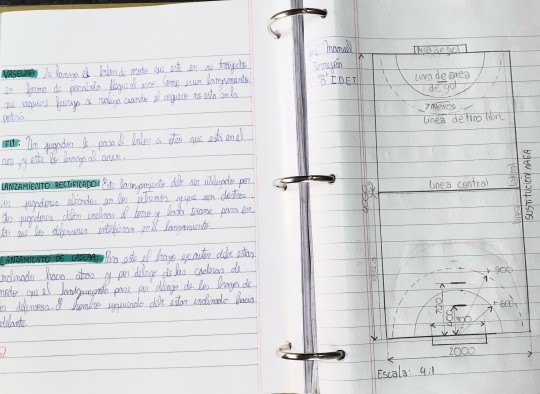 VASELINA: Se lanza el balón de modo que este en su trayecto
en forma de parabola llegue al arco. Como es un lanzamiento
que requiere fuerza se realiza cuando el arquero no esta en la
FLY: Un jugador le pasa el balón a otro que esta en el
aire, y este lo lanza al arco.
LANZAMIENTO RECTIFICADO: Este lanzamiento debe ser utilizado por
los jugadores ubicados en los extremos y que son diestros
los jugadores deben inclinar el torso y hasta tirarse para
que los defensores en el lanzamiento
LANZAMIENTO DE CADERA: Para este el brazo ejecutor debe estar
inclinado hacia atras y por debajo de las caderas de
modo que el lanzamiento pase por debajo de los brazos de
los defensores. El hombro izquierdo debe estar inclinado hacia
adelante.
Manuel
"B" I.D.E.T
Area de gol
Linea de area
de gol
7 metros
Linea de tiro libre
Linea central
Lateral
SUSTITUCION AREA
900
600
700
400
300
2000
Escala: 4:1